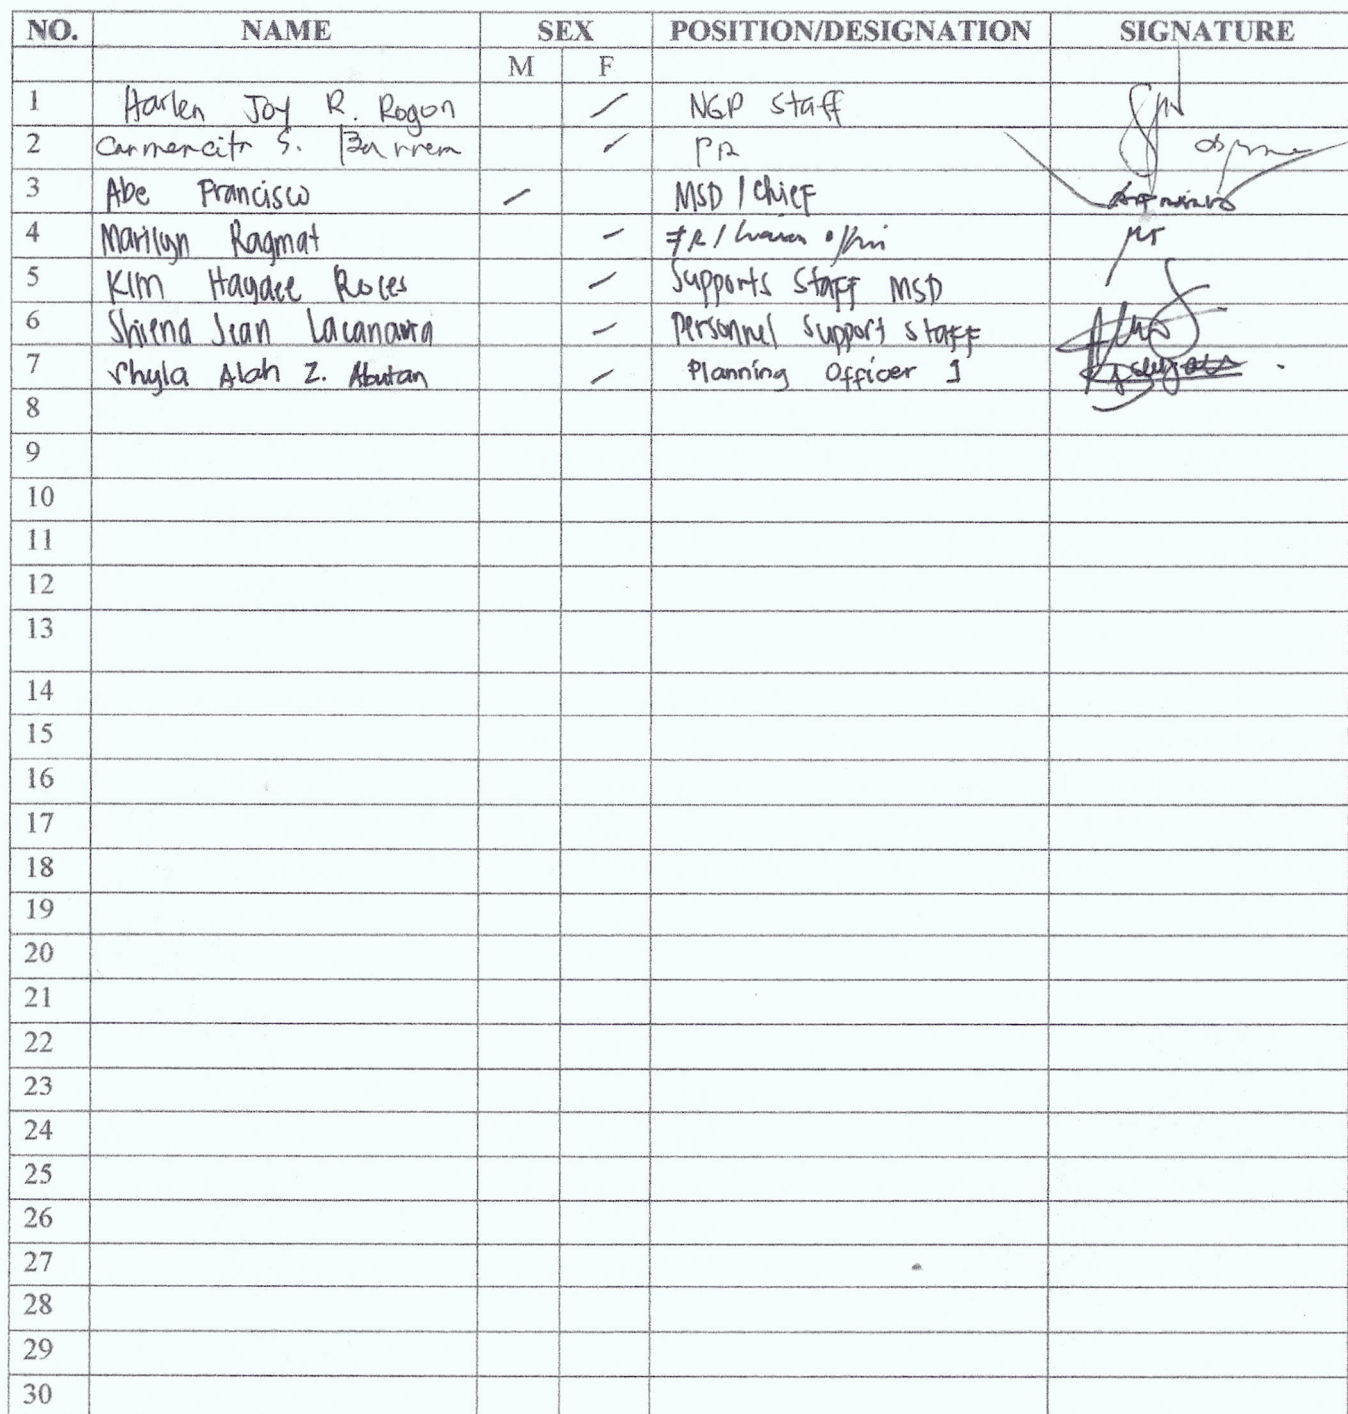 NO. NAME SEX POSITION/DESIGNATION SIGNATURE
M F
1 Harlen Joy R. Rogon / NGP Staff
2 Carmencita S. / 
3 Abe Francisco / MSD / Chief
4 Marilyn Ragmat /
5 Kim Haydee Roces / Supports Staff MSD
6 Shiena Jean / Personnel Support Staff
7 Shyla Alah Z. Abutan / Planning Officer I
8
9
10
11
12
13
14
15
16
17
18
19
20
21
22
23
24
25
26
27
28
29
30